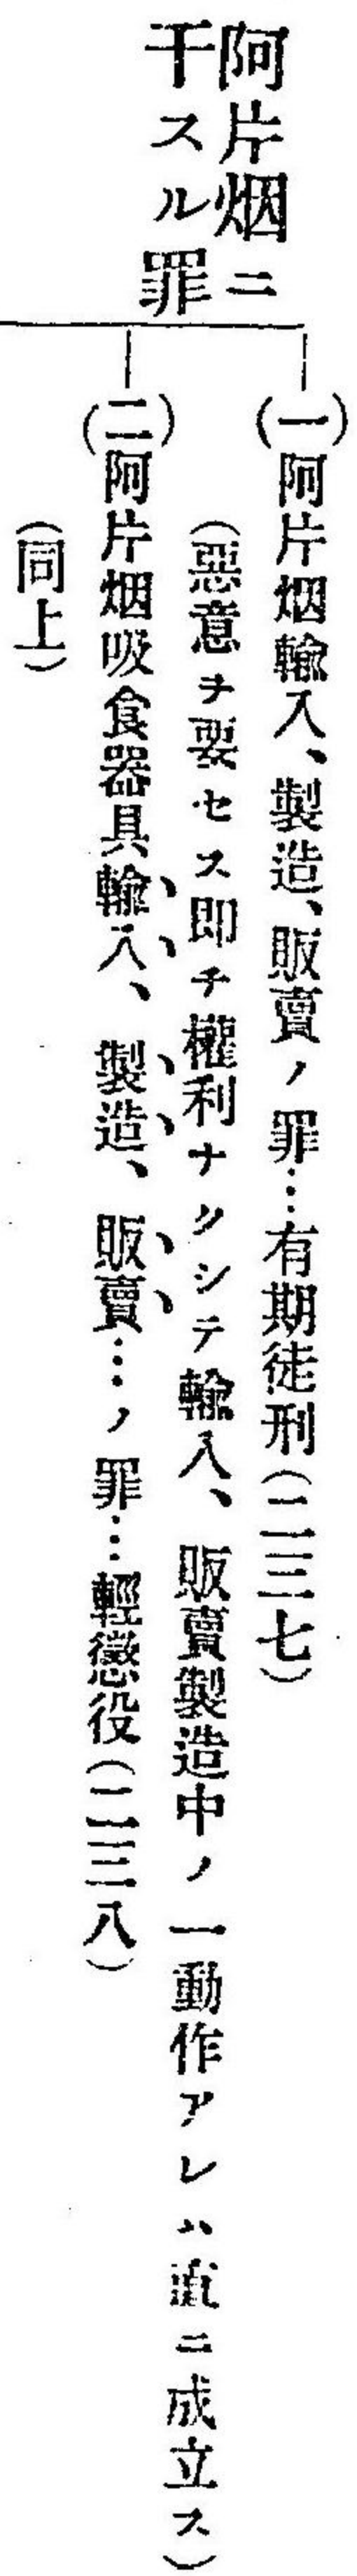 阿片烟ニ
干スル罪
(一)阿片烟輸入、製造、販賣ノ罪…有期徒刑(二三七)
(惡意ヲ要セス即チ權利ナクシテ輸入、販賣製造中ノ一動作アレハ直ニ成立ス)
(二)阿片烟吸食器具輸入、製造、販賣…ノ罪…輕懲役(二三八)
(同上)